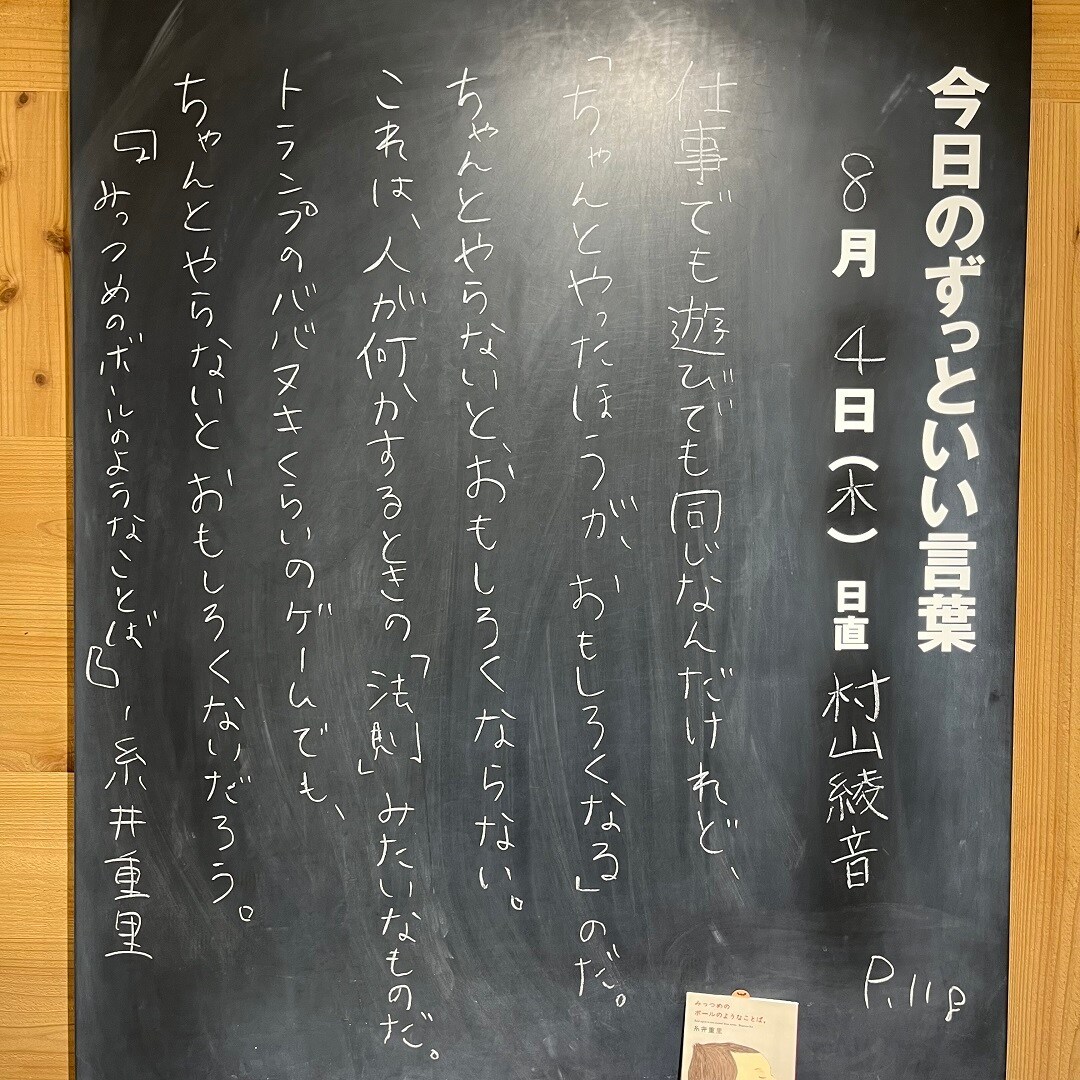 今日のずっといい言葉
8月4日(木) 日直 村山綾音
P.118
仕事でも遊びでも同じなんだけれど、
「ちゃんとやったほうが、おもしろくなる」のだ。
ちゃんとやらないと、おもしろくならない。
これは、人が何かするときの「法則」みたいなものだ。
トランプのババヌキくらいのゲームでも、
ちゃんとやらないとおもしろくないだろう。
『みっつめのボールのようなことば』-糸井重里
みっつめの
ボールのようなことば。
糸井重里